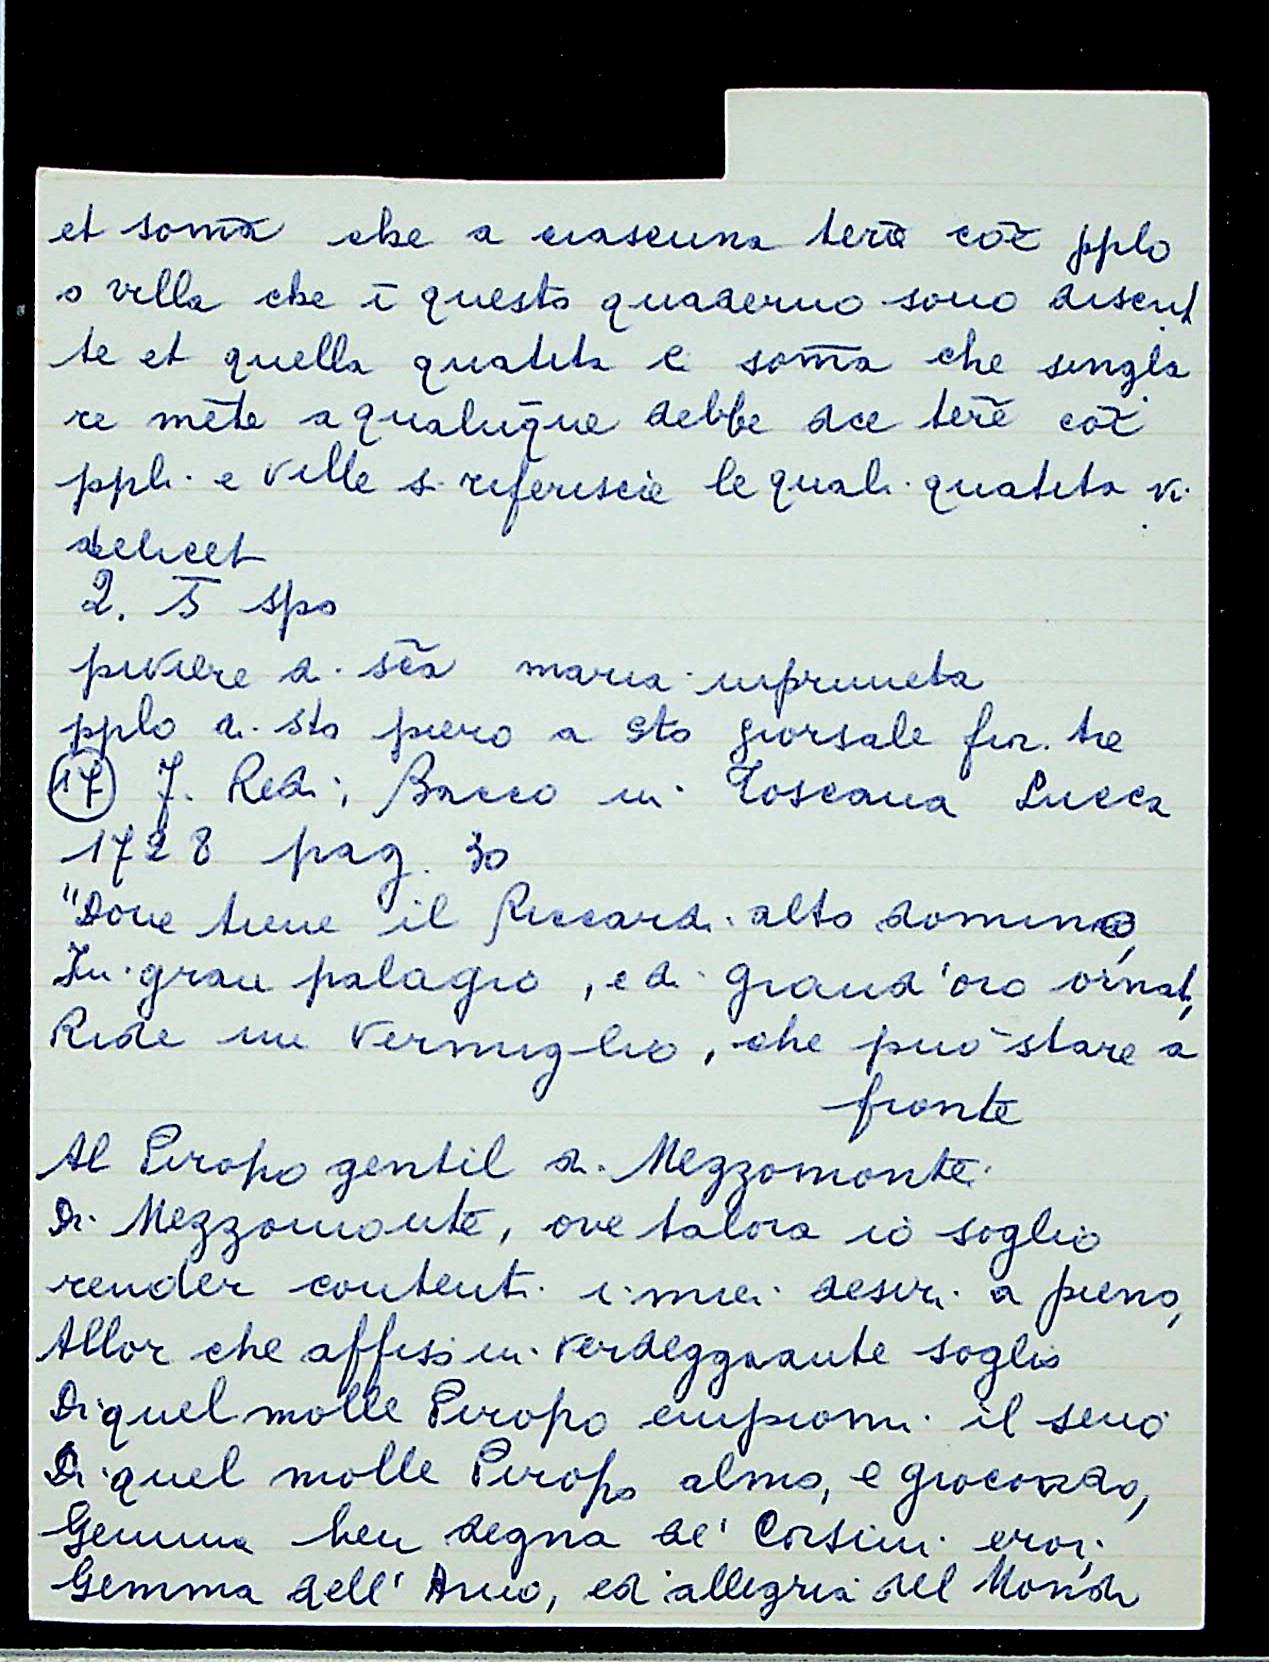 et som̄a che a ciascuna terā coē pplo
o villa che ī questo quaderno sono discrit
te et quella quātita e som̄a che singla
re mēte a qualuq̄ue debbe dce terē coē
ppli e ville si referiscie le quali quātita vi
delicet
2. S̄ spo
piviere di scā maria inpruneta
pplo di sto piero a sto giersale fior. tre
(17) F. Redi, Bacco in Toscana Lucca
1728 pag. 30
"Dove tiene il Riccardi alto dominio,
In gran palagio, e di grand'oro ornato,
Ride un vermiglio, che può stare a
fronte
Al Piropo gentil di Mezzomonte
Di Mezzomonte, ove talora io soglio
render contenti i miei desiri a pieno,
Allor che affiso in verdeggiante soglio
Di quel molle Piropo empiomi il seno
Di quel molle Piropo almo, e giocondo,
Gemma ben degna de' Corsini eroi;
Gemma dell' Arno, ed allegria del Mondo